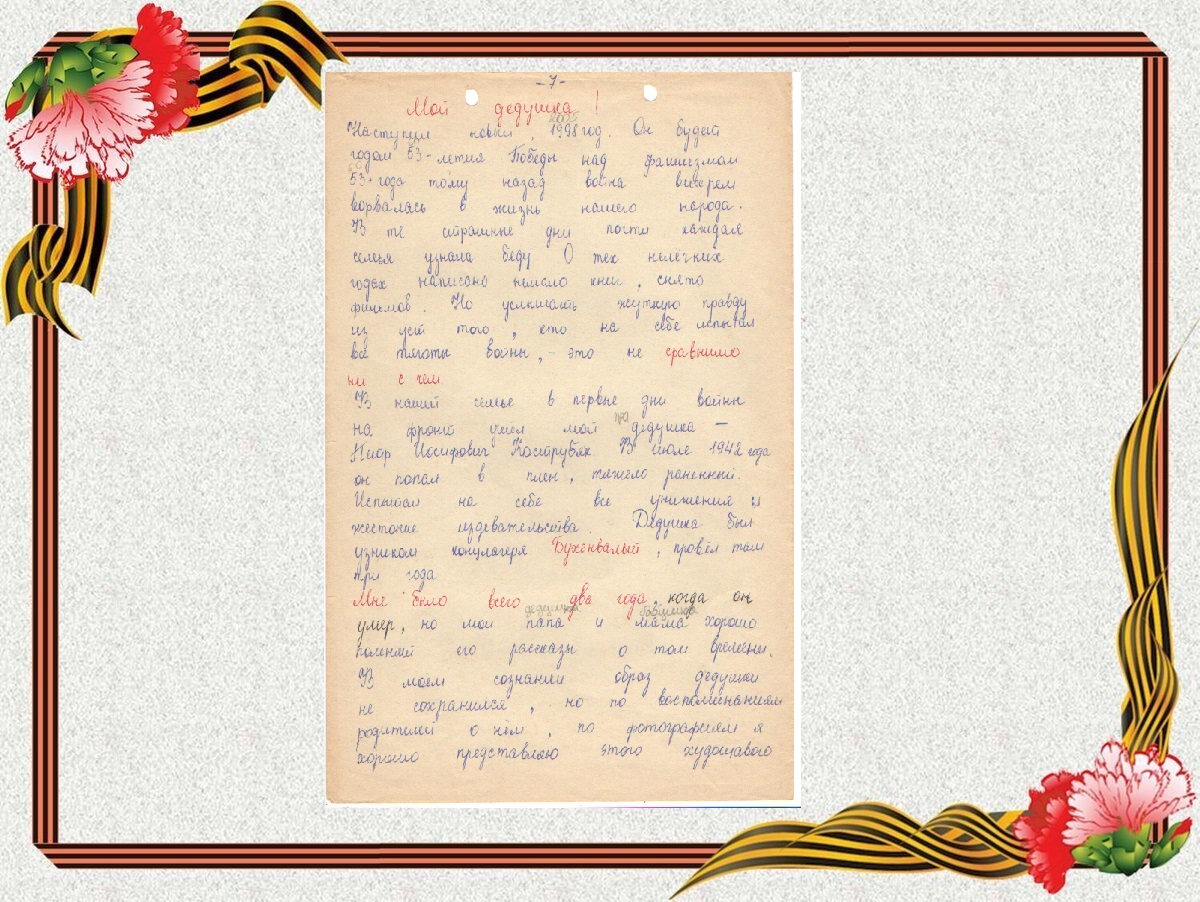 -7-
Мой дедушка!
2005
Наступил новый, 1998 год. Он будет
годом 53-летия Победы над фашизмом
53-года тому назад война вихрем
ворвалась в жизнь нашего народа.
В те страшные дни почти каждая
семья узнала беду О тех нелегких
годах написано немало книг, снято
фильмов. Но услышать жуткую правду
из уст того, кто на себе испытал
все тяготы войны, - это не сравнимо
ни с чем
В нашей семье в первые дни войны
пра
на фронт ушел мой дедушка —
Иосифович Кострубяк В июле 1942 года
он попал в плен, тяжело раненный.
Испытал на себе все унижения и
жестокие издевательства. Дедушка был
узником концлагеря Бухенвальд, провёл там
три года
Мне было всего два года, когда он
дедушка бабушка
умер, но мои папа и мама хорошо
помнят его рассказы о том времени.
В моем сознании образ дедушки
не сохранился, но по воспоминаниям
родителей о нём, по фотографиям я
хорошо представляю этого худощавого